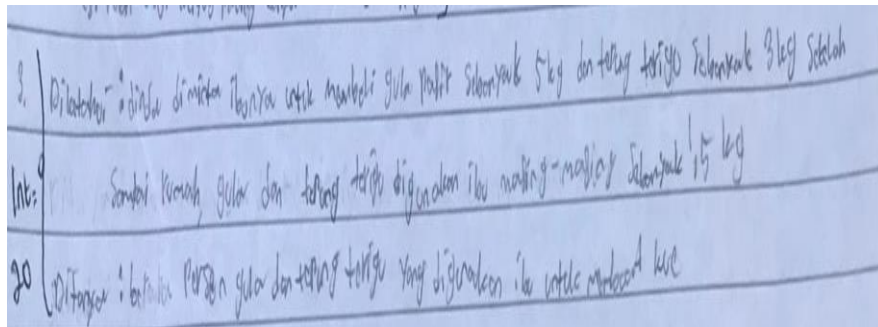 3. Diketahui : dinda diminta ibunya untuk membeli gula pasir sebanyak 5 kg dan tepung terigu sebanyak 3 kg setelah
Int: Sampai rumah, gula dan tepung terigu digunakan ibu masing-masing sebanyak 1,5 kg
20 Ditanya : berapa persen gula dan tepung terigu yang digunakan ibu untuk membuat kue